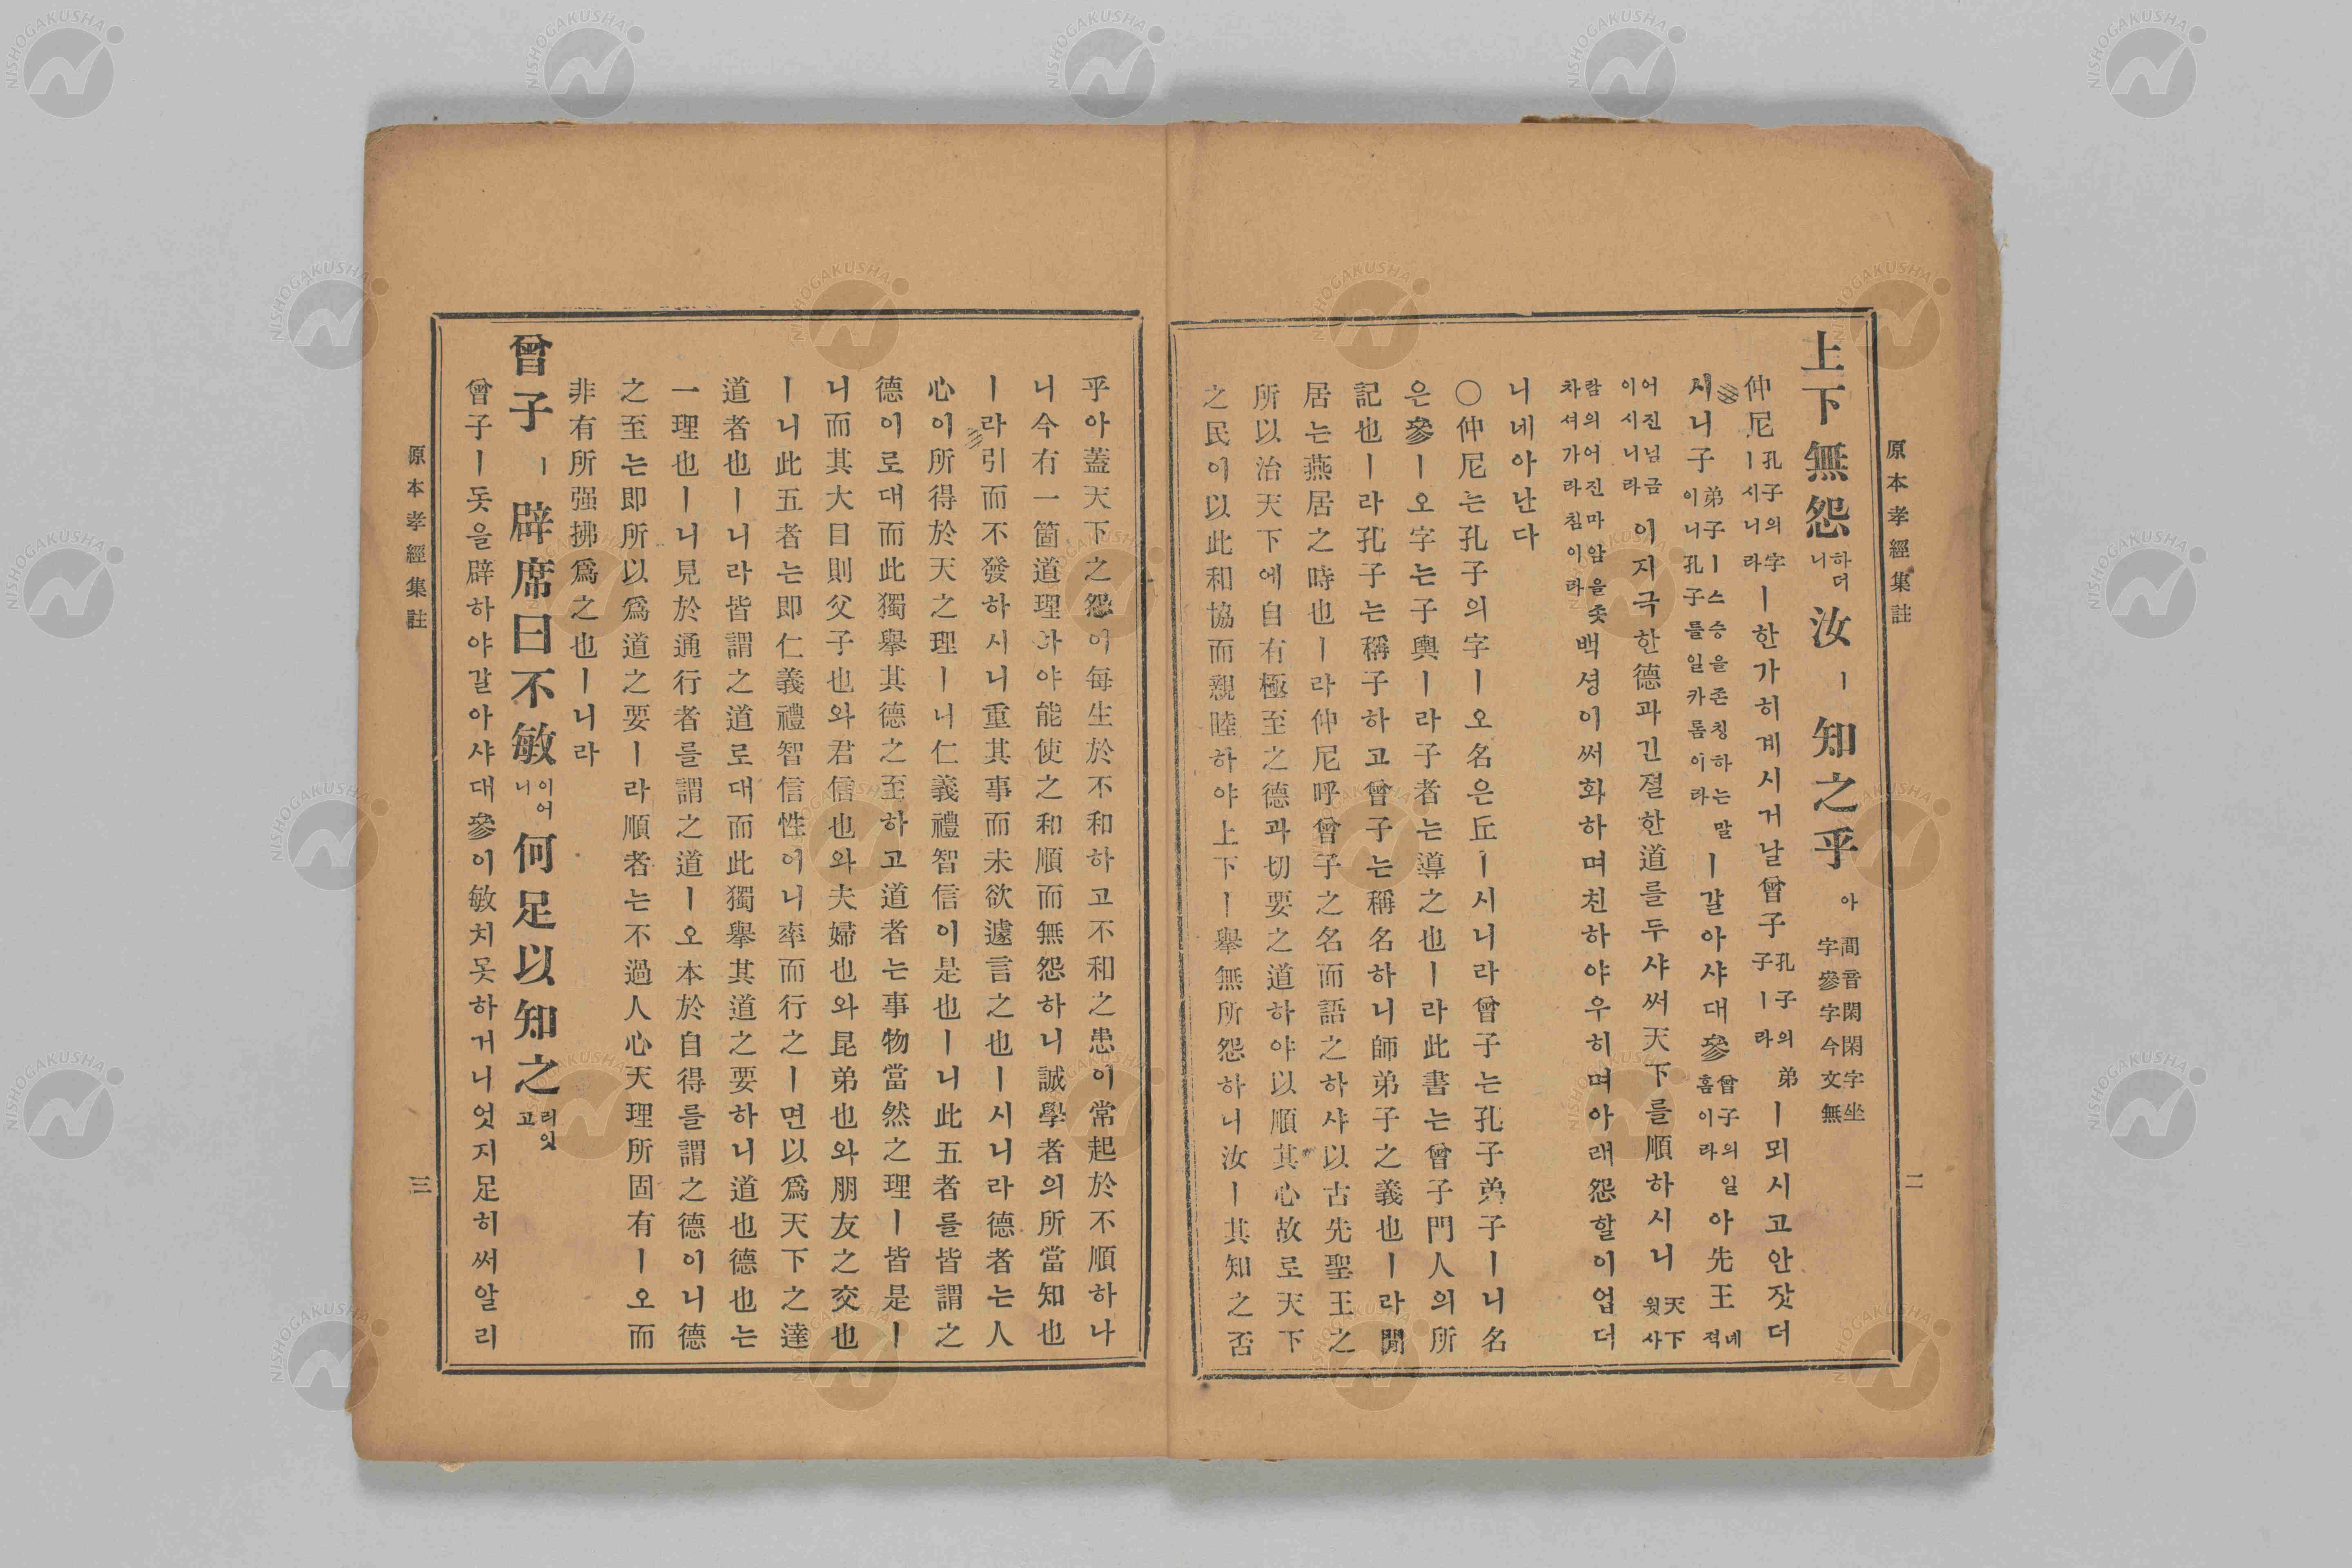 原本孝經集註
二
上下無怨하더니汝ㅣ知之乎아間音閑閑字坐字參字今文無
仲尼ㅣ孔子의字ㅣ시니라ㅣ한가히계시거날曾子孔子의弟子ㅣ라ㅣ뫼시고안잣더
시니子弟子ㅣ스승을존칭하는말이니孔子를일카롬이라ㅣ갈아샤대參曾子의일홈이라아先王네젹
어진님금이시니라이지극한德과긴졀한道를두샤써天下를順하시니天下윗사
람의어진마암을좃차셔가라침이라백셩이써화하며친하야우히며아래怨할이업더
니네아난다
〇仲尼는孔子의字ㅣ오名은丘ㅣ시니라曾子는孔子弟子ㅣ니名
은參ㅣ오字는子輿ㅣ라子者는導之也ㅣ라此書는曾子門人의所
記也ㅣ라孔子는稱子하고曾子는稱名하니師弟子之義也ㅣ라閒
居는燕居之時也ㅣ라仲尼呼曾子之名而語之하샤以古先聖王之
所以治天下에自有極至之德과切要之道하야以順其心故로天下
之民이以此和協而親睦하야上下ㅣ擧無所怨하니汝ㅣ其知之否
乎아蓋天下之怨이每生於不和하고不和之患이常起於不順하나
니今有一箇道理라야能使之和順而無怨하니誠學者의所當知也
ㅣ라引而不發하시니重其事而未欲遽言之也ㅣ시니라德者는人
心이所得於天之理ㅣ니仁義禮智信이是也ㅣ니此五者를皆謂之
德이로대而此獨擧其德之至하고道者는事物當然之理ㅣ皆是ㅣ
니而其大目則父子也와君信也와夫婦也와昆弟也와朋友之交也
ㅣ니此五者는即仁義禮智信性이니率而行之ㅣ면以爲天下之達
道者也ㅣ니라皆謂之道로대而此獨擧其道之要하니道也德也는
一理也ㅣ니見於通行者를謂之道ㅣ오本於自得를謂之德이니德
之至는即所以爲道之要ㅣ라順者는不過人心天理所固有ㅣ오而
非有所强拂爲之也ㅣ니라
曾子ㅣ辟席曰不敏이어니何足以知之리잇고
曾子ㅣ돗을辟하야갈아샤대參이敏치못하거니엇지足히써알리
原本孝經集註
三